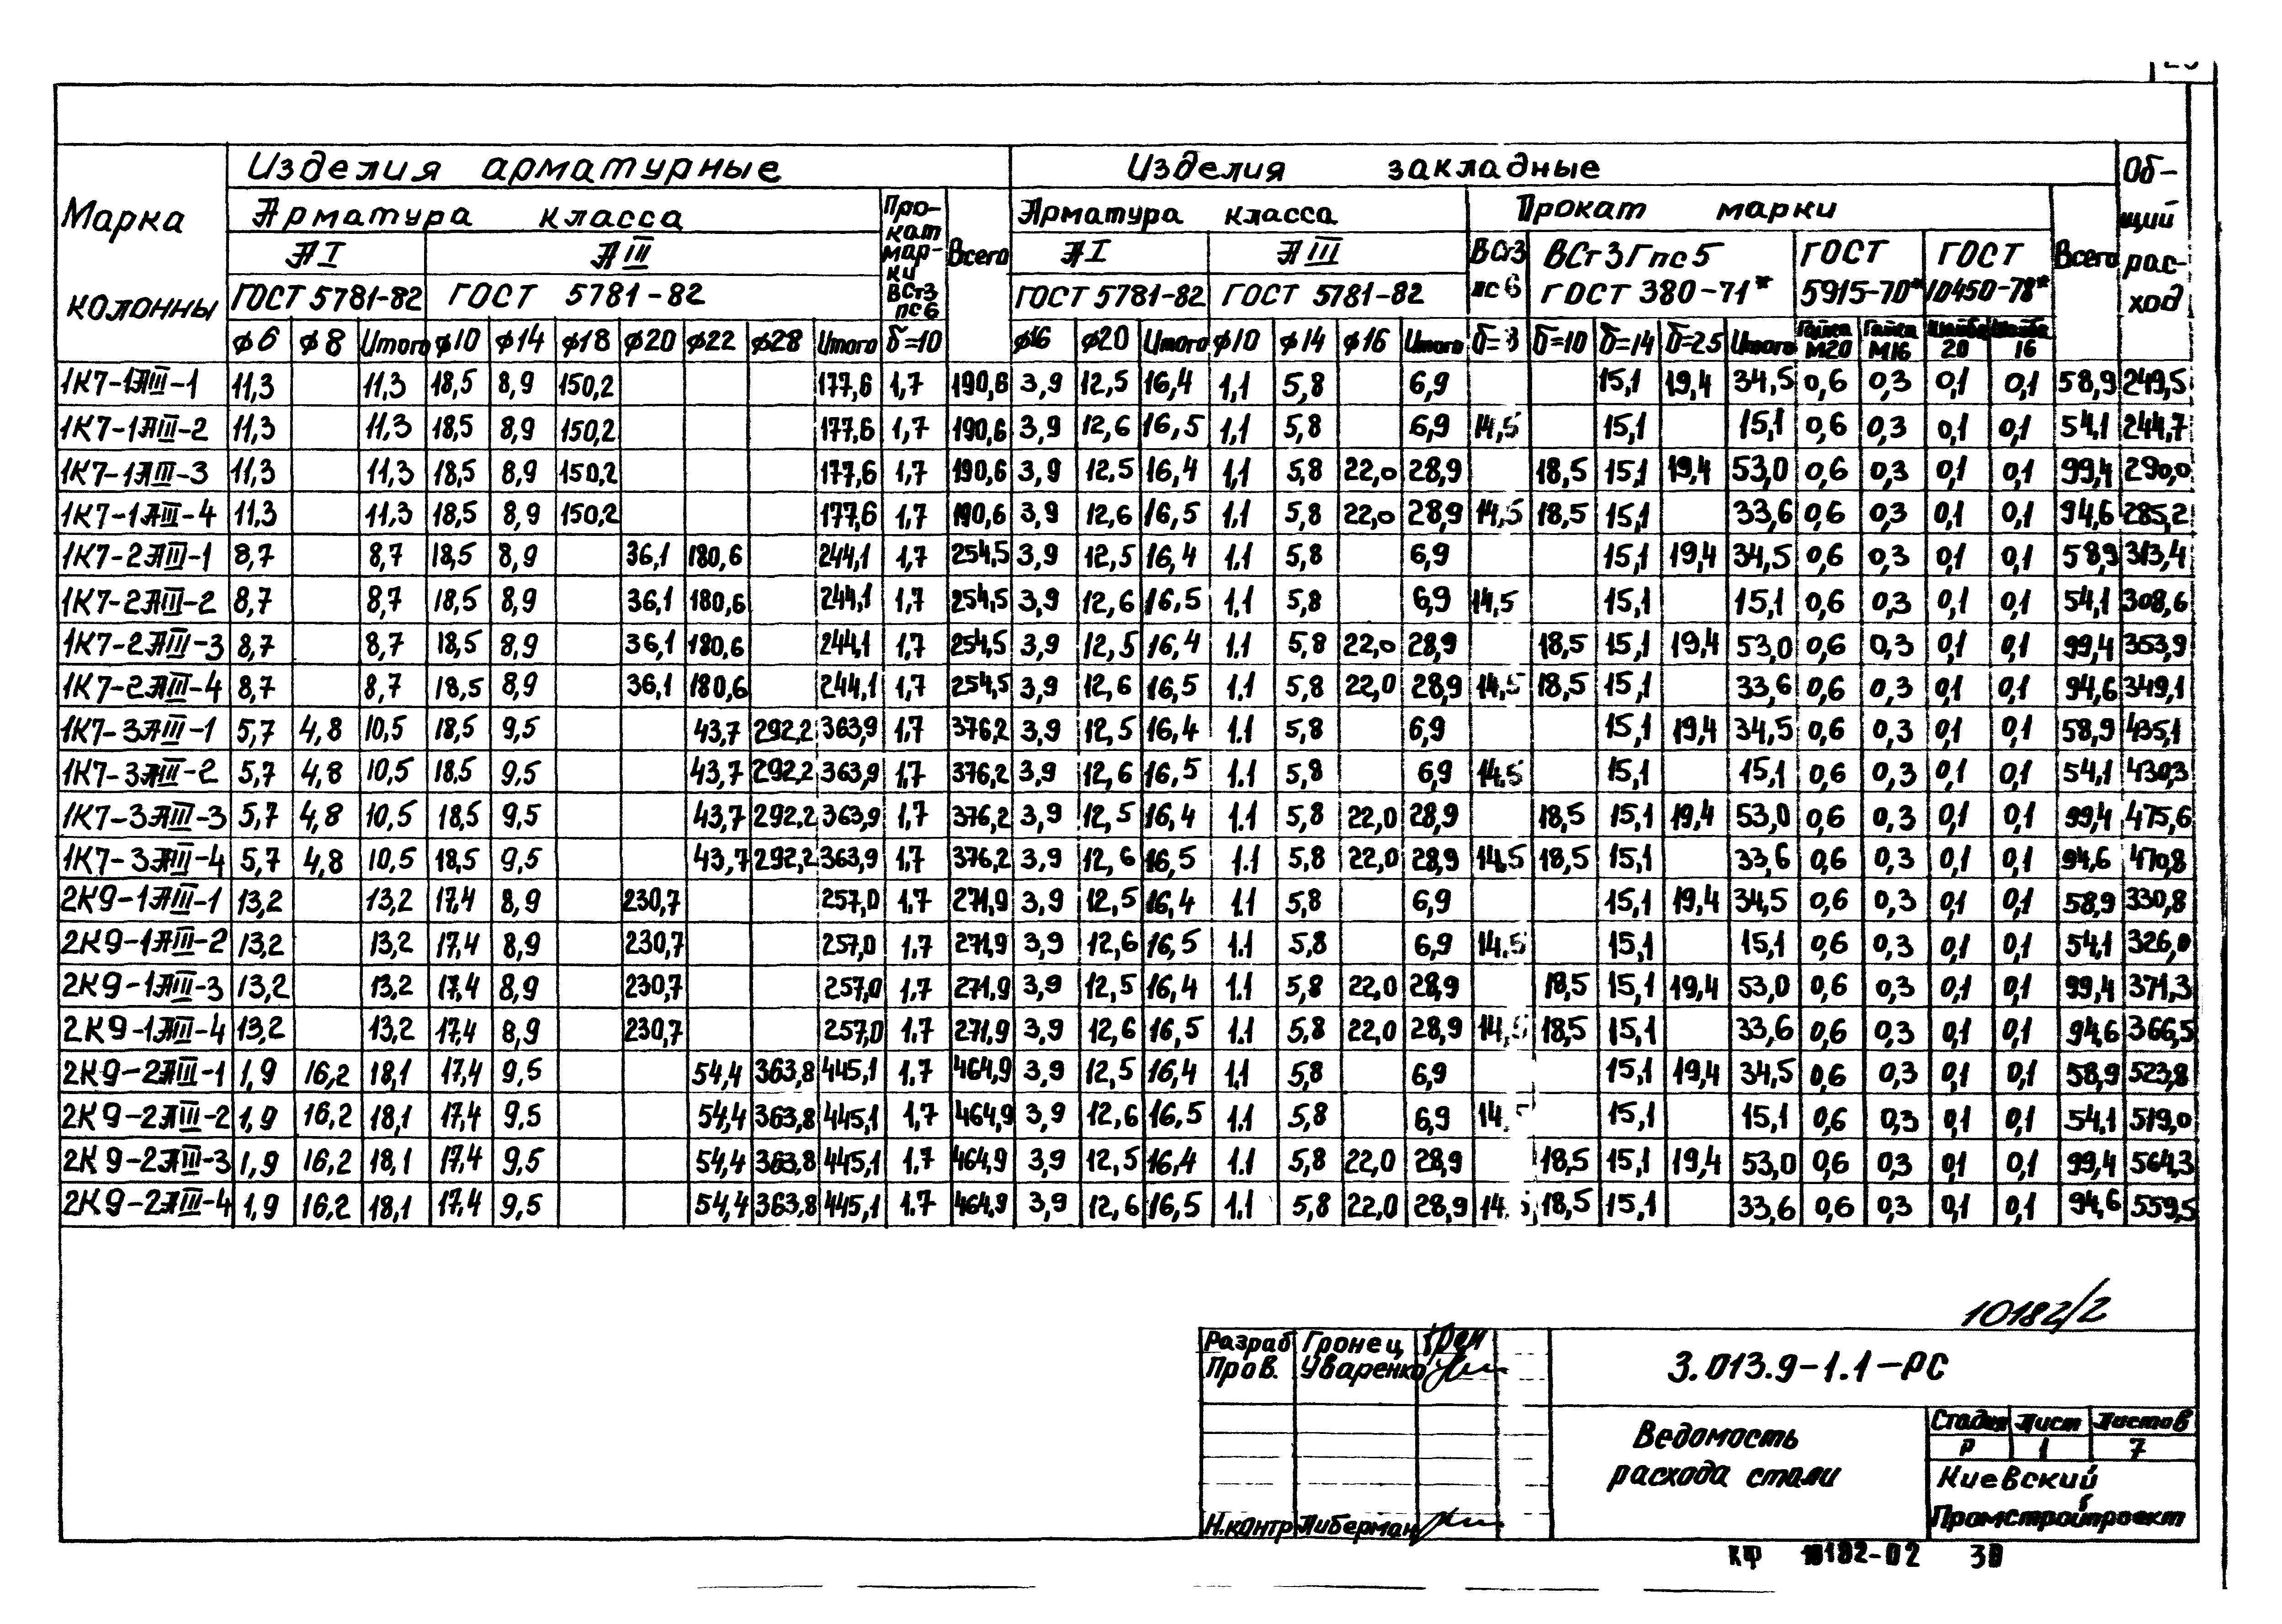 Марка колонны
Изделия арматурные
Изделия закладные
Общий расход
Арматура класса
Прокат марки ВСт3 пс6
Всего
Арматура класса
Прокат марки
Всего
АI
АIII
АI
АIII
ВСт3 пс6
ВСт3Гпс5
ГОСТ 5915-70*
ГОСТ 10450-78*
ГОСТ 5781-82
ГОСТ 5781-82
ГОСТ 5781-82
ГОСТ 5781-82
ГОСТ 380-71*
ø6 ø8 Итого ø10 ø14 ø18 ø20 ø22 ø28 Итого δ=10 ø16 ø20 Итого ø10 ø14 ø16 Итого δ=3 δ=10 δ=14 δ=25 Итого Гайка М20 Гайка М16 Шайба 20 Шайба 16
1К7-1АIII-1 11,3 11,3 18,5 8,9 150,2 177,6 1,7 190,6 3,9 12,5 16,4 1,1 5,8 6,9 15,1 19,4 34,5 0,6 0,3 0,1 0,1 58,9 249,5
1К7-1АIII-2 11,3 11,3 18,5 8,9 150,2 177,6 1,7 190,6 3,9 12,6 16,5 1,1 5,8 6,9 14,5 15,1 15,1 0,6 0,3 0,1 0,1 54,1 244,7
1К7-1АIII-3 11,3 11,3 18,5 8,9 150,2 177,6 1,7 190,6 3,9 12,5 16,4 1,1 5,8 22,0 28,9 18,5 15,1 19,4 53,0 0,6 0,3 0,1 0,1 99,4 290,0
1К7-1АIII-4 11,3 11,3 18,5 8,9 150,2 177,6 1,7 190,6 3,9 12,6 16,5 1,1 5,8 22,0 28,9 14,5 18,5 15,1 33,6 0,6 0,3 0,1 0,1 94,6 285,2
1К7-2АIII-1 8,7 8,7 18,5 8,9 36,1 180,6 244,1 1,7 254,5 3,9 12,5 16,4 1.1 5,8 6,9 15,1 19,4 34,5 0,6 0,3 0,1 0,1 58,9 313,4
1К7-2АIII-2 8,7 8,7 18,5 8,9 36,1 180,6 244,1 1,7 254,5 3,9 12,6 16,5 1.1 5,8 6,9 14,5 15,1 15,1 0,6 0,3 0,1 0,1 54,1 308,6
1К7-2АIII-3 8,7 8,7 18,5 8,9 36,1 180,6 244,1 1,7 254,5 3,9 12,5 16,4 1.1 5,8 22,0 28,9 18,5 15,1 19,4 53,0 0,6 0,3 0,1 0,1 99,4 353,9
1К7-2АIII-4 8,7 8,7 18,5 8,9 36,1 180,6 244,1 1,7 254,5 3,9 12,6 16,5 1.1 5,8 22,0 28,9 14,5 18,5 15,1 33,6 0,6 0,3 0,1 0,1 94,6 349,1
1К7-3АIII-1 5,7 4,8 10,5 18,5 9,5 43,7 292,2 363,9 1,7 376,2 3,9 12,5 16,4 1.1 5,8 6,9 15,1 19,4 34,5 0,6 0,3 0,1 0,1 58,9 435,1
1К7-3АIII-2 5,7 4,8 10,5 18,5 9,5 43,7 292,2 363,9 1,7 376,2 3,9 12,6 16,5 1.1 5,8 6,9 14.5 15,1 15,1 0,6 0,3 0,1 0,1 54,1 430,3
1К7-3АIII-3 5,7 4,8 10,5 18,5 9,5 43,7 292,2 363,9 1,7 376,2 3,9 12,5 16,4 1.1 5,8 22,0 28,9 18,5 15,1 19,4 53,0 0,6 0,3 0,1 0,1 99,4 475,6
1К7-3АIII-4 5,7 4,8 10,5 18,5 9,5 43,7 292,2 363,9 1,7 376,2 3,9 12,6 16,5 1.1 5,8 22,0 28,9 14.5 18,5 15,1 33,6 0,6 0,3 0,1 0,1 94,6 470,8
2К9-1АIII-1 13,2 13,2 17,4 8,9 230,7 257,0 1,7 271,9 3,9 12,5 16,4 1.1 5,8 6,9 15,1 19,4 34,5 0,6 0,3 0,1 0,1 58,9 330,8
2К9-1АIII-2 13,2 13,2 17,4 8,9 230,7 257,0 1.7 271,9 3,9 12,6 16,5 1.1 5,8 6,9 14.5 15,1 15,1 0,6 0,3 0,1 0,1 54,1 326,0
2К9-1АIII-3 13,2 13,2 17,4 8,9 230,7 257,0 1.7 271,9 3,9 12,5 16,4 1.1 5,8 22,0 28,9 18,5 15,1 19,4 53,0 0,6 0,3 0,1 0,1 99,4 371,3
2К9-1АIII-4 13,2 13,2 17,4 8,9 230,7 257,0 1.7 271,9 3,9 12,6 16,5 1.1 5,8 22,0 28,9 14,5 18,5 15,1 33,6 0,6 0,3 0,1 0,1 94,6 366,5
2К9-2АIII-1 1,9 16,2 18,1 17,4 9,5 54,4 363,8 445,1 1,7 464,9 3,9 12,5 16,4 1.1 5,8 6,9 15,1 19,4 34,5 0,6 0,3 0,1 0,1 58,9 523,8
2К9-2АIII-2 1,9 16,2 18,1 17,4 9,5 54,4 363,8 445,1 1,7 464,9 3,9 12,6 16,5 1.1 5,8 6,9 14,5 15,1 15,1 0,6 0,3 0,1 0,1 54,1 519,0
2К9-2АIII-3 1,9 16,2 18,1 17,4 9,5 54,4 363,8 445,1 1.7 464,9 3,9 12,5 16,4 1.1 5,8 22,0 28,9 18,5 15,1 19,4 53,0 0,6 0,3 0,1 0,1 99,4 564,3
2К9-2АIII-4 1,9 16,2 18,1 17,4 9,5 54,4 363,8 445,1 1.7 464,9 3,9 12,6 16,5 1.1 5,8 22,0 28,9 14,5 18,5 15,1 33,6 0,6 0,3 0,1 0,1 94,6 559,5
10182/2
Разраб Гронец
Пров. Уваренко
Н.контр Либерман
3.013.9-1.1-РС
Ведомость
расхода стали
Стадия Лист Листов
Р 1 7
Киевский
Промстройпроект
КФ 10182-02 30